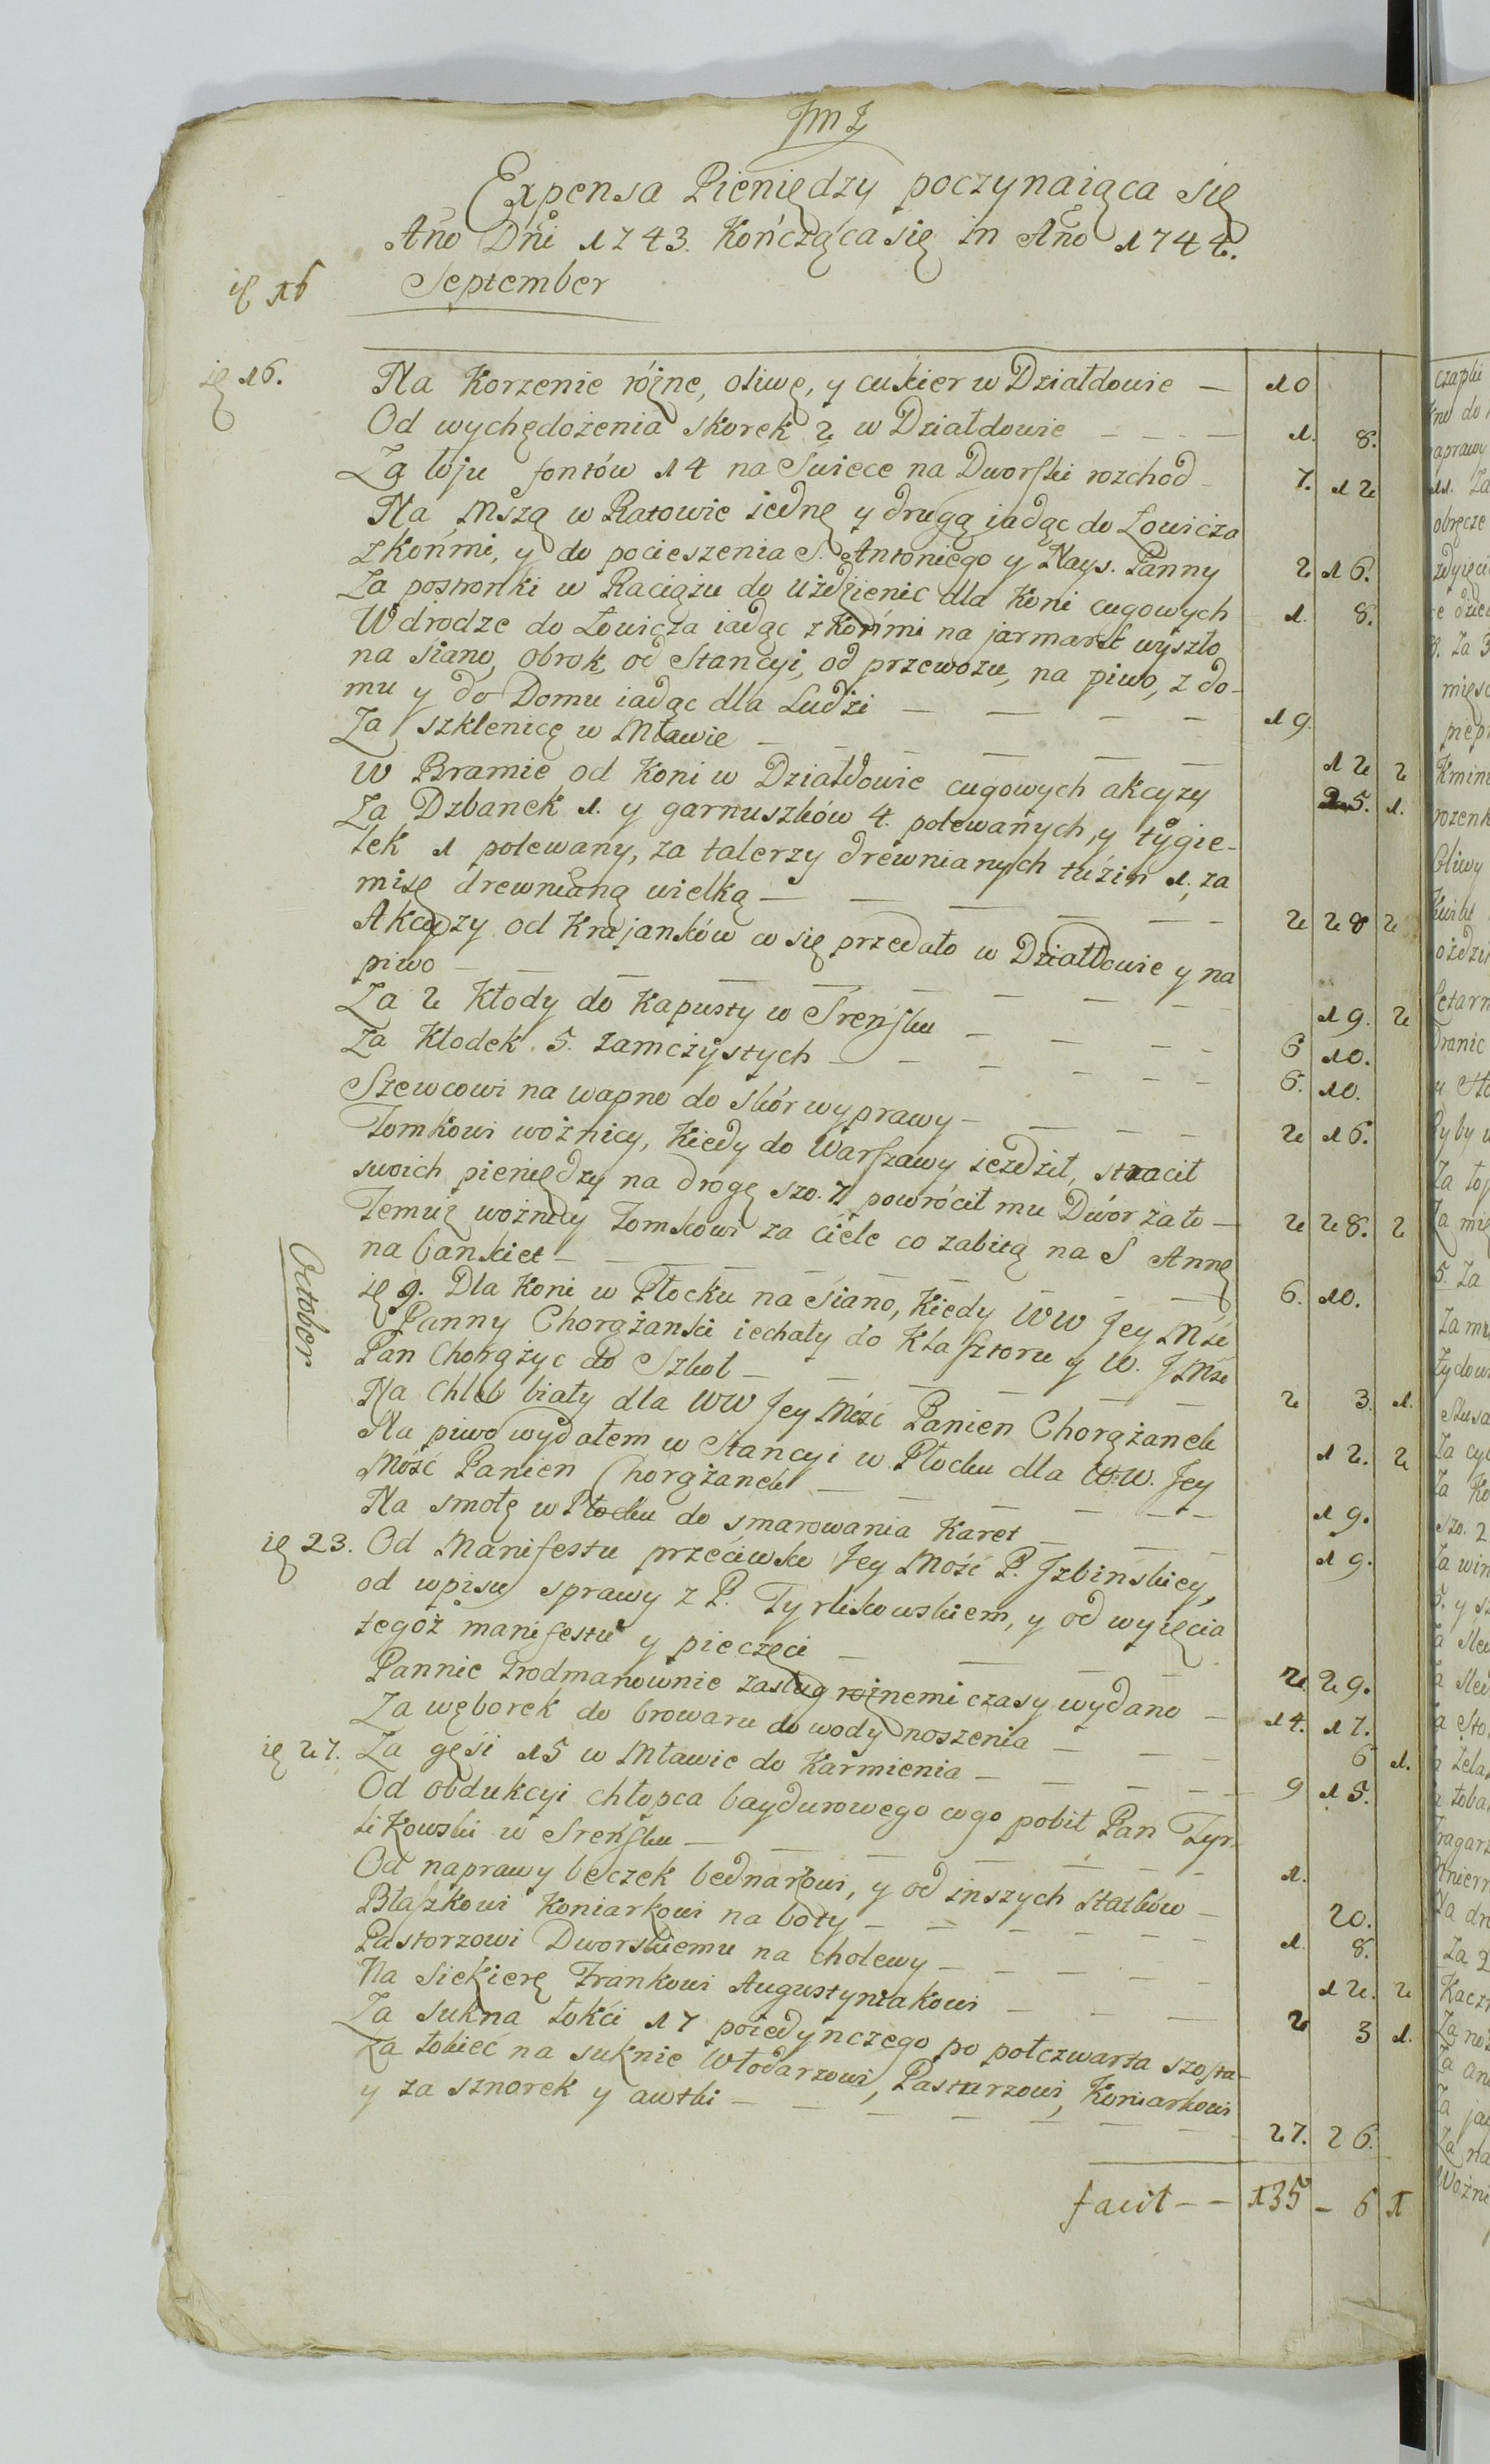 JmJ
Expensa Pieniędzy poczynaiąca się
Año Dñi 1743. Kończąca się in Año 1744.
ię 16 September
ię 16. Na Korzenie różne, oliwę, y cukier w Działdowie — 10
Od wychędożenia skorek 2 w Działdowie — 1. 8.
Za łoju fontów 14 na Świece na Dworski rozchod 7. 12
Na Mszą w Ratowie iednę y drugą iadąc do Łowicza
z końmi, y do pocieszenia S. Antoniego y Nays. Panny 2 16.
Za postronki w Raciążu do uździenic dla Koni cugowych 1. 8.
W drodze do Łowicza iadąc z Końmi na jarmark wyszło
na siano, obrok, od Stancyi, od przewozu, na piwo, z do-
mu y do Domu iadąc dla Ludzi — 19.
Za szklenicę w Mławie — 12 2
W Bramie od Koni w Działdowie cugowych akcyzy 25. 1.
Za Dzbanek 1. y garnuszków 4. polewanych, y tygie-
lek 1 polewany, za talerzy drewnianych tuzin 1, za
misę drewnianą wielką — 2 28 2
Akcyzy od Krajanków co się przedało w Działdowie y na
piwo — 19. 2
Za 2 Kłody do Kapusty w Sreńsku — 6 10.
Za Kłodek 5. zamczystych — 6. 10.
Szewcowi na wapno do skór wyprawy — 2 16.
Tomkowi woźnicy, Kiedy do Warszawy iezdził, stracił
swoich pieniędzy na drogę szo. 7. powrócił mu Dwór za to — 2 28. 2
Temuż woźnicy Tomkowi za ciele co zabitą na S Annę
na bankiet — 6. 10.
October
ię 9. Dla Koni w Płocku na siano, Kiedy WW Jey Mśc
Panny Chorążanki iechały do Klasztoru y W. J Mśc
Pan Chorążyc do Szkoł — 2 3. 1.
Na Chleb biały dla WW Jey Mość Panien Chorążanek 12. 2
Na piwo wydałem w Stancyi w Płocku dla W.W. Jey
Mość Panien Chorążanek — 19.
Na smołę w Płocku do smarowania Karet — 19.
ię 23. Od Manifestu przeciwko Jey Mość P. Jzbińskiey,
od wpisu sprawy z P. Tyrlikowskiem, y od wyięcia
tegoż manifestu y pieczęci — 2. 29.
Pannie Trodmanownie zasług rożnemi czasy wydano — 14. 17.
Za węborek do browaru do wody noszenia — 6 1.
ię 27. Za gęsi 15 w Mławie do Karmienia — 9 15.
Od obdukcyi chłopca baydurowego co go pobił Pan Tyr-
likowski w Sreńsku — 1.
Od naprawy beczek bednarzowi, y od inszych statków — 20.
Błaszkowi Koniarkowi na boty — 1. 8.
Pastorzowi Dworskiemu na cholewy — 12. 2
Na siekierę Frankowi Augustyniakowi — 2 3 1.
Za sukna łokci 17 poiedynczego po półczwarta szosta-
Za łokieć na suknie Włodarzowi, Pasturzowi, Koniarkowi
y za sznorek y awtki — 27. 26.
facit — — 135 — 6 1